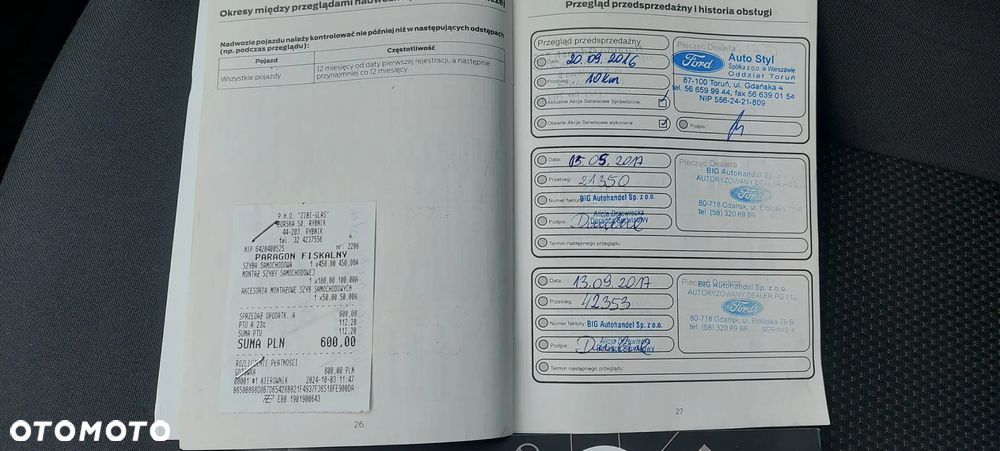 Okresy między przeglądami nadwozia
Nadwozie pojazdu należy kontrolować nie później niż w następujących odstępach
(np. podczas przeglądu):
Pojazd
Częstotliwość
Wszystkie pojazdy
12 miesięcy od daty pierwszej rejestracji, a następnie
przynajmniej co 12 miesięcy.
P.H.U. "ZIBI-GLAS"
44-203, RYBNIK
tel. 32 4237556
NIP 6420400525 nr: 2206
PARAGON FISKALNY
SZYBA SAMOCHODOWA 1 x450.00 450.00A
MONTAŻ SZYBY SAMOCHODOWEJ
1 x100.00 100.00A
AKCESORIA MONTAŻOWE SZYB SAMOCHODOWYCH
1 x50.00 50.00A
SPRZEDAŻ OPODATK. A 600,00
PTU A 23% 112,20
SUMA PTU 112,20
SUMA PLN 600,00
ROZLICZENIE PŁATNOŚCI
GOTÓWKA 600,00 PLN
00001 #1 KIEROWNIK 2024-10-03 11:47
EBB 1901900643
26
Przegląd przedsprzedażny i historia obsługi
Przegląd przedsprzedażny
Data: 20.09.2016
Przebieg: 10 km
Aktualne Akcje Serwisowe Sprawdzone:
Otwarte Akcje Serwisowe wykonane:
Pieczęć Dealera
Ford
Auto Styl
Spółka z o.o. w Warszawie
Oddział Toruń
87-100 Toruń, ul. Gdańska 4
tel. 56 659 99 44, fax 56 639 01 54
NIP 556-24-21-809
Podpis:
Data: 15.05.2017
Przebieg: 21350
Numer faktury: BIG Autohandel Sp. z o.o.
Podpis:
Termin następnego przeglądu:
Pieczęć Dealera
BIG Autohandel Sp. z o.o.
AUTORYZOWANY DEALER PG 012
Ford
80-718 Gdańsk, ul. Elbląska 79 B
tel. (58) 320 69 69
Data: 13.09.2017
Przebieg: 42353
Numer faktury: BIG Autohandel Sp. z o.o.
Podpis:
Termin następnego przeglądu:
BIG Autohandel Sp. z o.o.
AUTORYZOWANY DEALER PG 012
Ford
80-718 Gdańsk, ul. Elbląska 79 B
tel. (58) 320 69 69 SERWIS 4
27
OTOMOTO